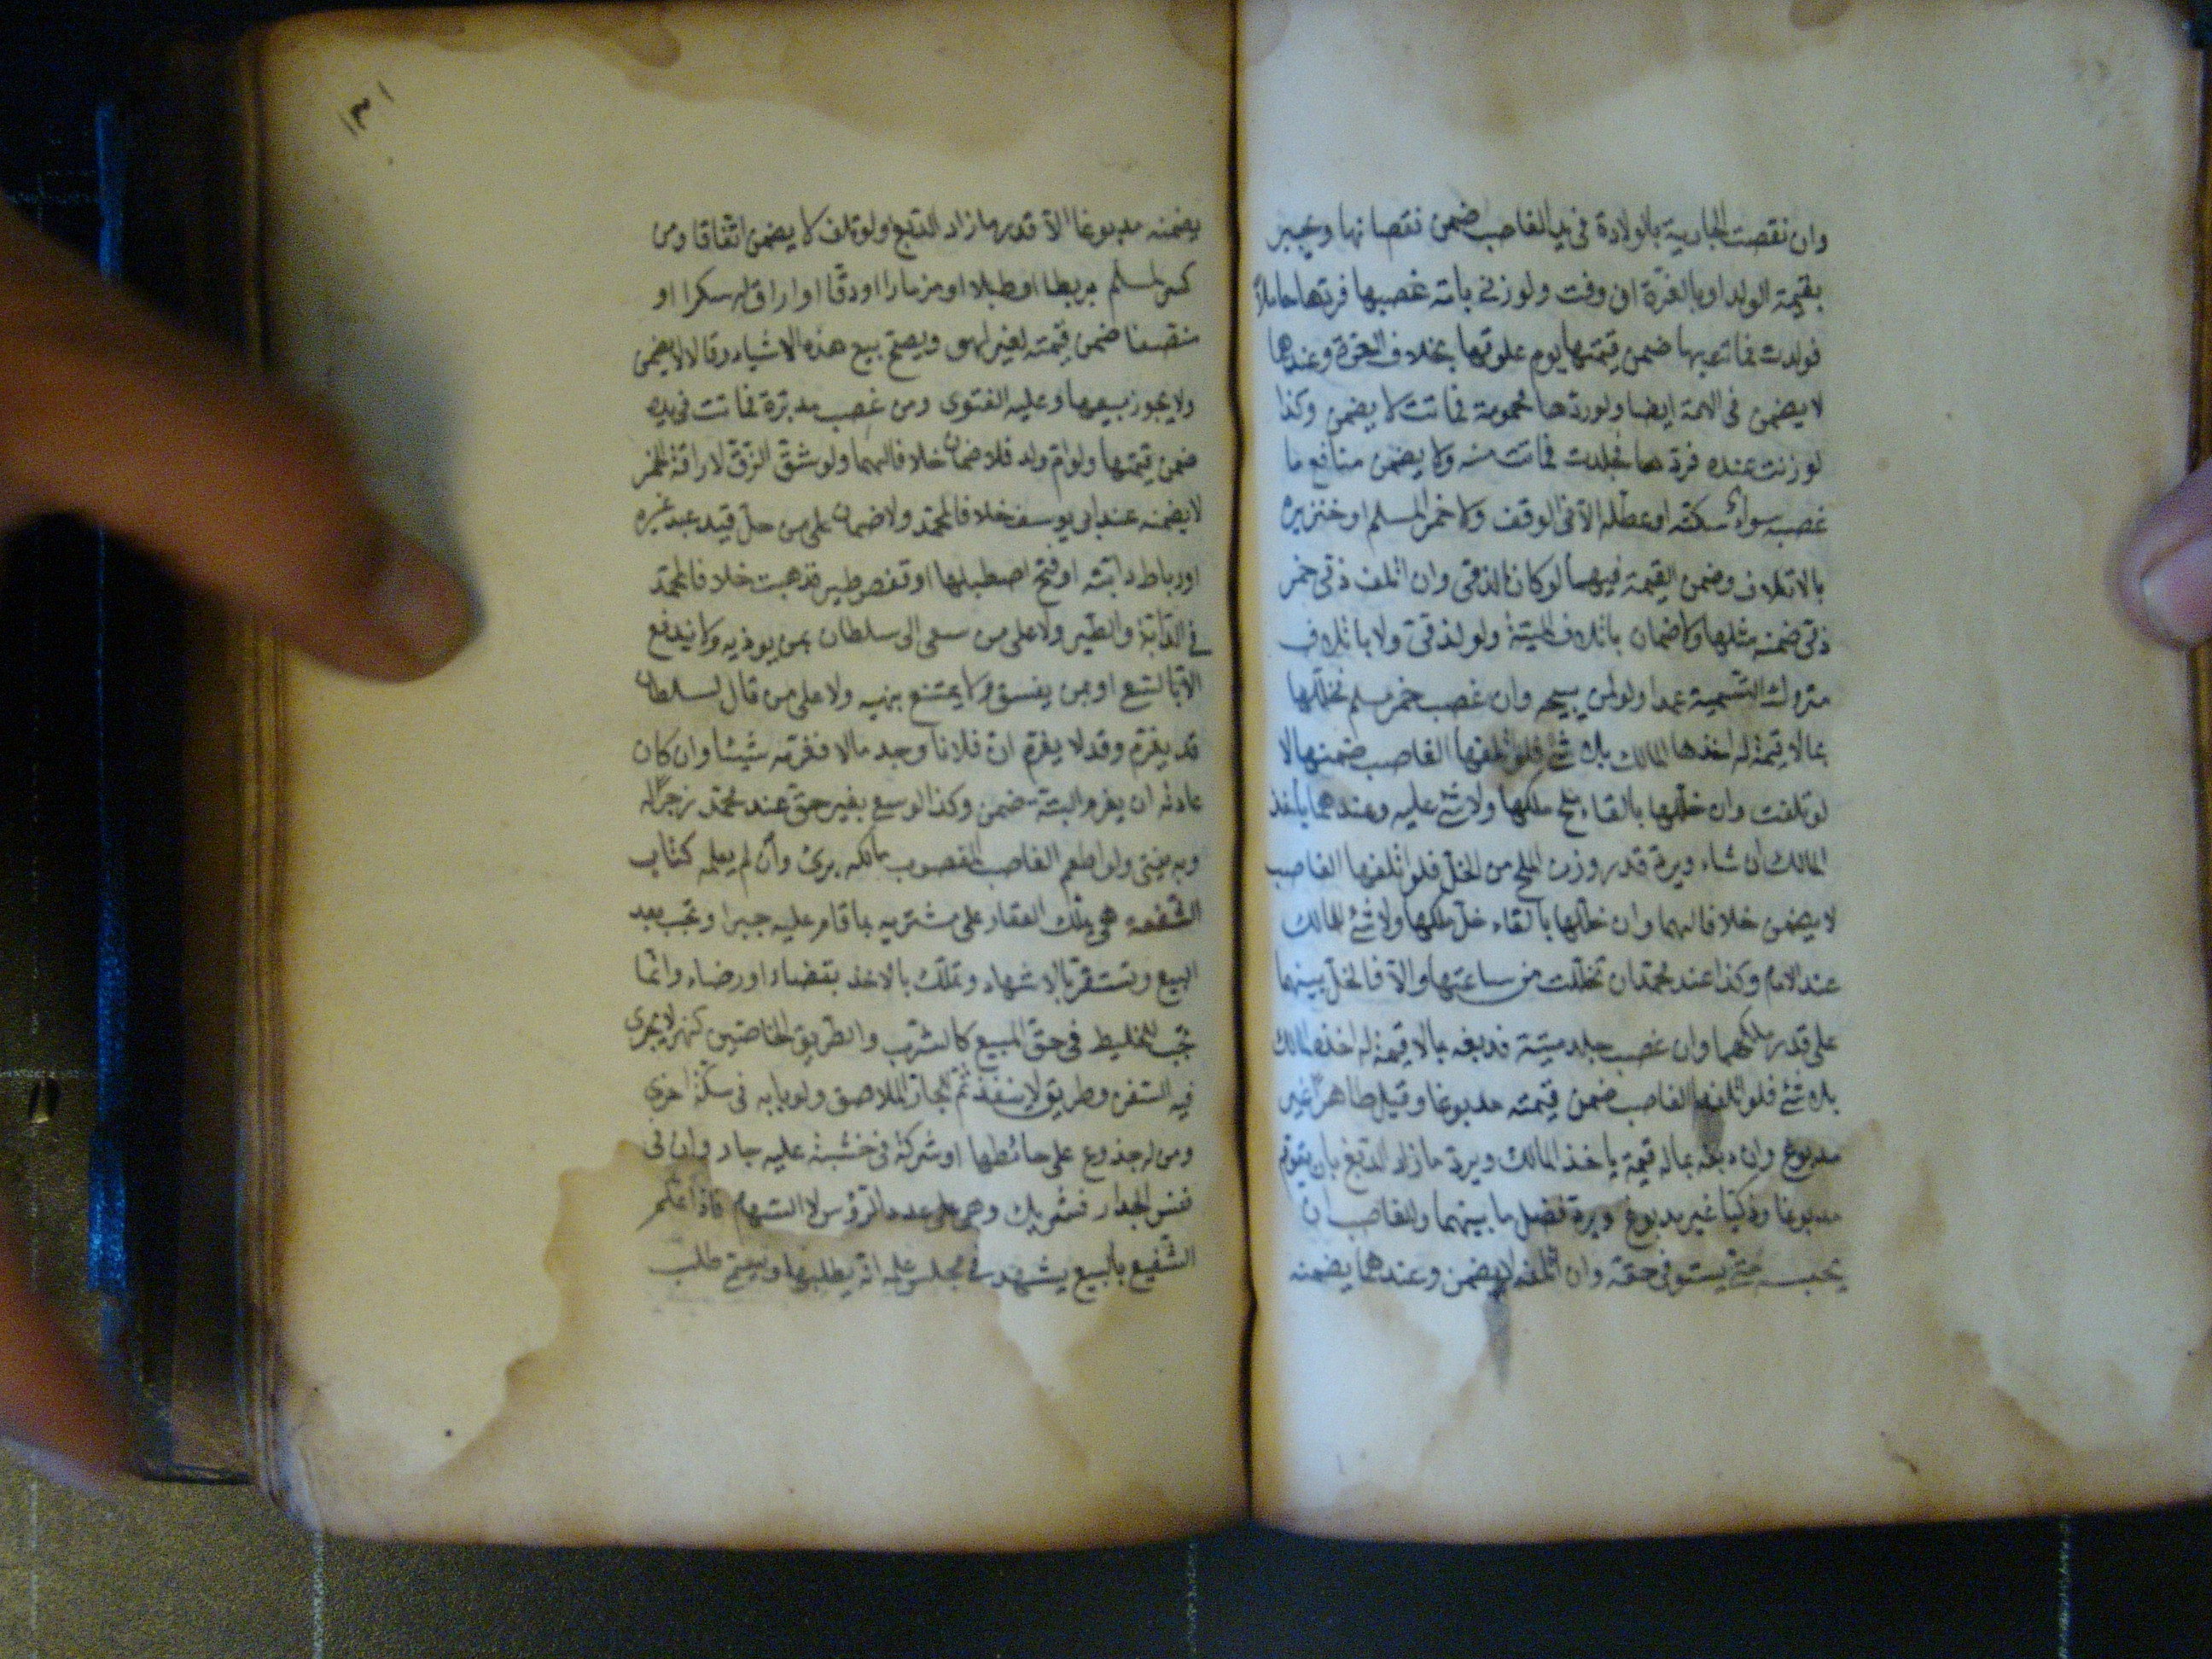 وان نقصت الجارية بالولادة في يد الغاصب ضمن نقصانها ويجبر
بقيمة الولد او بالغرة ان وفت ولو زنى بامة غصبها فردها حاملا
فولدت فماتت بها ضمن قيمتها يوم علوقها بخلاف الحرة وعندهما
لا يضمن في الامة ايضا ولو ردها محمومة فماتت لا يضمن وكذا
لو زنت عنده فردها فجلدت فماتت منه ولا يضمن منافع ما
غصبه سواء سكنه او عطله الا في الوقف ولا خمر المسلم او خنزيره
بالاتلاف وضمن القيمة فيهما لو كانا لذمي وان اتلف ذمي خمر
ذمي ضمن مثلها ولا ضمان باتلاف الميتة ولو لذمي ولا باتلاف
متروك التسمية عمدا ولو لمن يبيحه وان غصب خمر مسلم فخللها
بما لا قيمة له اخذها المالك بلا شئ فلو اتلفها الغاصب ضمنها لا
لو تلفت وان خللها بالقاء ملح ملكها ولا شئ عليه وعندهما ياخذ
المالك ان شاء ويرد قدر وزن الملح من الخل فلو اتلفها الغاصب
لا يضمن خلافا لهما وان خللها بالقاء خل ملكها ولا شئ للمالك
عند الامام وكذا عند محمد ان تخللت من ساعتها والا فالخل بينهما
على قدر ملكهما وان غصب جلد ميتة فدبغه بما لا قيمة له اخذه المالك
بلا شئ فلو اتلفه الغاصب ضمن قيمته مدبوغا وقيل طاهرا غير
مدبوغ وان دبغه بما له قيمة ياخذ المالك ويرد ما زاد الدبغ بان يقوم
مدبوغا وذكيا غير مدبوغ ويرد فضل ما بينهما وللغاصب ان
يحبسه حتى يستوفي حقه وان اتلفه لا يضمن وعندهما يضمنه
١٣١
يضمنه مدبوغا الا قدر ما زاد الدبغ ولو تلف لا يضمن اتفاقا ومن
كسر لمسلم بربطا او طبلا او مزمارا او دفا او اراق له سكرا او
منصفا ضمن قيمته لغير لهو ويصح بيع هذه الاشياء وقالا لا يضمن
ولا يجوز بيعها وعليه الفتوى ومن غصب مدبرة فماتت في يده
ضمن قيمتها ولو ام ولد فلا ضمان خلافا لهما ولو شق الزق لاراقة الخمر
لا يضمنه عند ابي يوسف خلافا لمحمد ولا ضمان على من حل قيد عبد غيره
او رباط دابته او فتح اصطبلها او قفص طير فذهبت خلافا لمحمد
في الدابة والطير ولا على من سعى الى سلطان بمن يوذيه ولا يندفع
الا بالسعي او بمن يفسق ولا يمتنع بنهيه ولا على من قال لسلطان
قد يغرم وقد لا يغرم ان فلانا وجد مالا فغرمه شيئا وان كان
عادته ان يغرم البتة ضمن وكذا لو سعي بغير حق عند محمد زجرا له
وبه يفتى ولو اطعم الغاصب المغصوب مالكه برئ وان لم يعلمه كتاب
الشفعة هي تملك العقار على مشتريه بما قام عليه جبرا وتجب بعد
البيع وتستقر بالاشهاد وتملك بالاخذ بقضاء او رضاء وانما
تجب للخليط في حق المبيع كالشرب والطريق الخاصين كنهر لا يجرى
فيه السفن وطريق لا ينفذ ثم للجار الملاصق ولو بابه في سكة اخرى
ومن له جذوع على حائطها او شركة في خشبة عليه جار وان في
نفس الجدار فشريك وهي على عدد الرؤس لا السهام فاذا علم
الشفيع بالبيع يشهد في مجلس علمه انه يطلبها ويسمى طلب